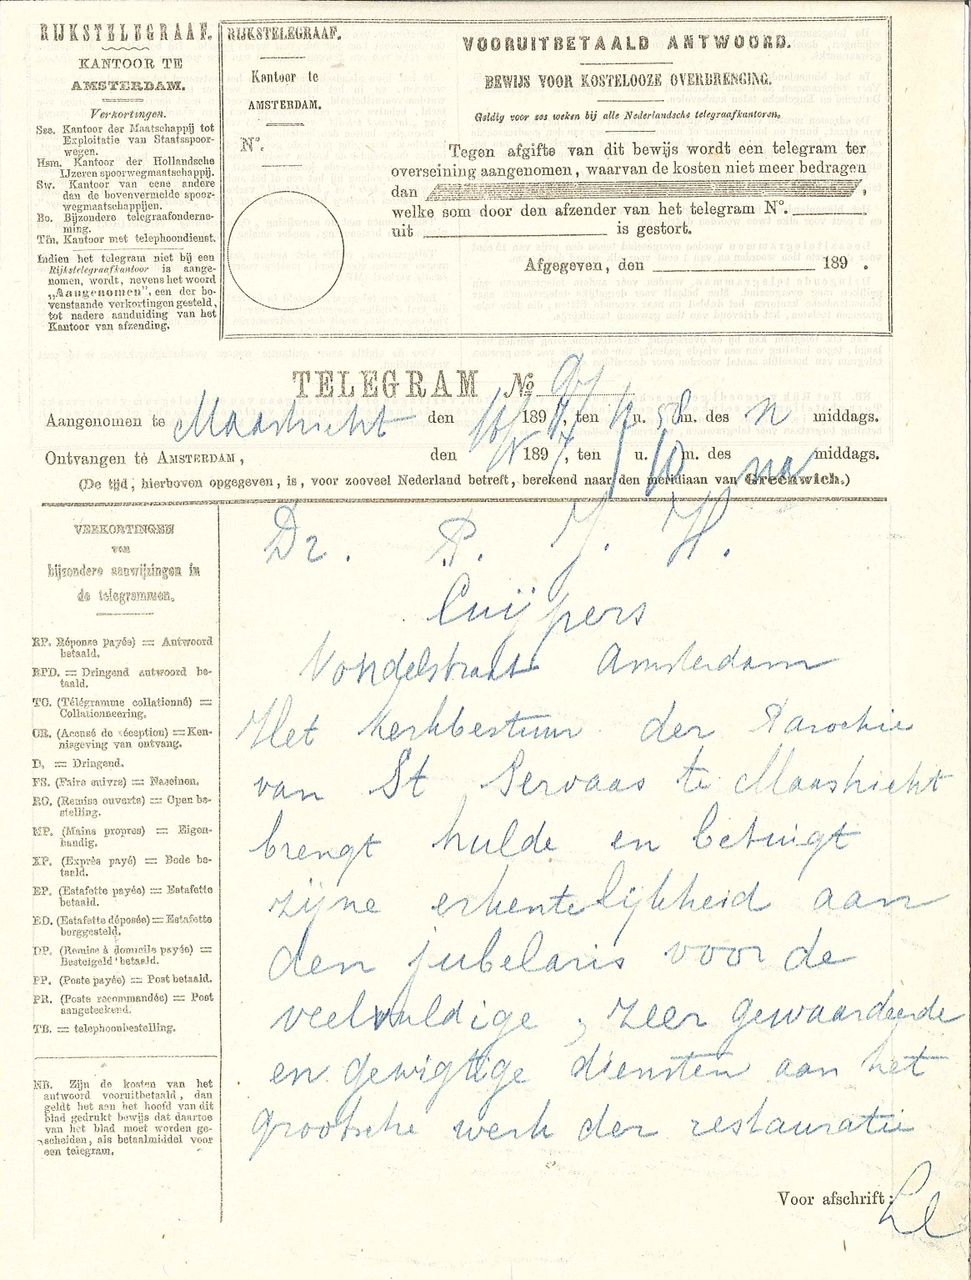 RIJKSTELEGRAAF.
KANTOOR TE
AMSTERDAM.
Verkortingen.
Sss. Kantoor der Maatschappij tot
Exploitatie van Staatsspoor-
wegen.
Hsm. Kantoor der Hollandsche
IJzeren spoorwegmaatschappij.
Sw. Kantoor van eene andere
dan de bovenvermelde spoor-
wegmaatschappijen.
Bo. Bijzondere telegraafonderne-
ming.
Tfn. Kantoor met telephoondienst.
Indien het telegram niet bij een
Rijkstelegraafkantoor is aange-
nomen, wordt, nevens het woord
„Aangenomen”, een der bo-
venstaande verkortingen gesteld,
tot nadere aanduiding van het
Kantoor van afzending.
RIJKSTELEGRAAF.
Kantoor te
AMSTERDAM.
N°.
VOORUITBETAALD ANTWOORD.
BEWIJS VOOR KOSTELOOZE OVERBRENGING.
Geldig voor zes weken bij alle Nederlandsche telegraafkantoren.
Tegen afgifte van dit bewijs wordt een telegram ter
overseining aangenomen, waarvan de kosten niet meer bedragen
dan ,
welke som door den afzender van het telegram N°.
uit is gestort.
Afgegeven, den 189 .
TELEGRAM No
Aangenomen te Maastricht den 16/ 1897, ten u. 58 m. des n middags.
Ontvangen te AMSTERDAM, den 1897, ten 1 u. 10 m. des na middags.
(De tijd, hierboven opgegeven, is, voor zooveel Nederland betreft, berekend naar den meridiaan van Greenwich.)
VERKORTINGEN
VOOR
bijzondere aanwijzingen in
de telegrammen.
RP. Réponse payée) = Antwoord
betaald.
RPD. = Dringend antwoord be-
taald.
TC. (Télégramme collationné) =
Collationneering.
CR. (Accusé de réception) = Ken-
nisgeving van ontvang.
D, = Dringend.
FS. (Faire suivre) = Nazeinen.
RO. (Remise ouverte) = Open be-
stelling.
MP. (Mains propres) = Eigen-
handig.
XP. (Exprès payé) = Bode be-
taald.
EP. (Estafette payée) = Estafette
betaald.
ED. (Estafette déposée) = Estafette
borggesteld.
DP. (Remise à domicile payée) =
Bestelgeld betaald.
PP. (Poste payée) = Post betaald.
PR. (Poste recommandée) = Post
aangeteekend.
TB. = telephoonbestelling.
NB. Zijn de kosten van het
antwoord vooruitbetaald, dan
geldt het aan het hoofd van dit
blad gedrukt bewijs dat daartoe
van het blad moet worden ge-
scheiden, als betaalmiddel voor
een telegram.
Dr. P. J. H.
Cuijpers
Vondelstraat Amsterdam
Het Kerkbestuur der Parochie
van St Servaas te Maastricht
brengt hulde en betuigt
zijne erkentelijkheid aan
den jubelaris voor de
veelvuldige, zeer gewaardeerde
en gewigtige diensten aan het
grootsche werk der restauratie
Voor afschrift: